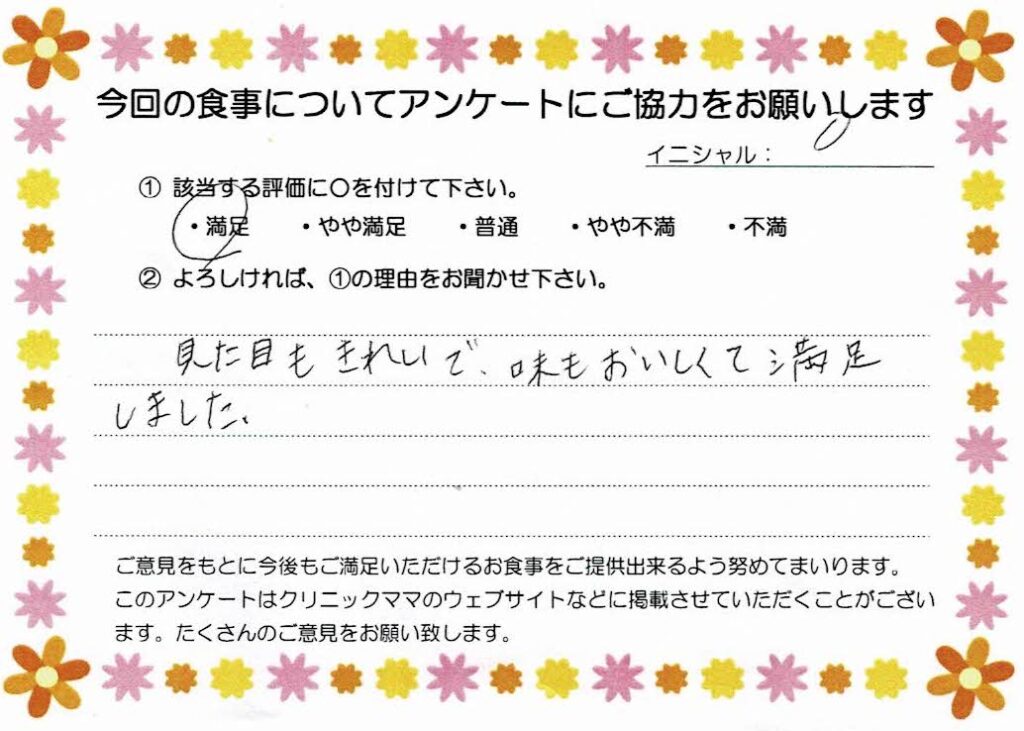 今回の食事についてアンケートにご協力をお願いします
イニシャル：
① 該当する評価に○を付けて下さい。
・満足 ・やや満足 ・普通 ・やや不満 ・不満
② よろしければ、①の理由をお聞かせ下さい。
見た目もきれいで、味もおいしくて満足
しました。
ご意見をもとに今後もご満足いただけるお食事をご提供出来るよう努めてまいります。
このアンケートはクリニックママのウェブサイトなどに掲載させていただくことがござい
ます。たくさんのご意見をお願い致します。